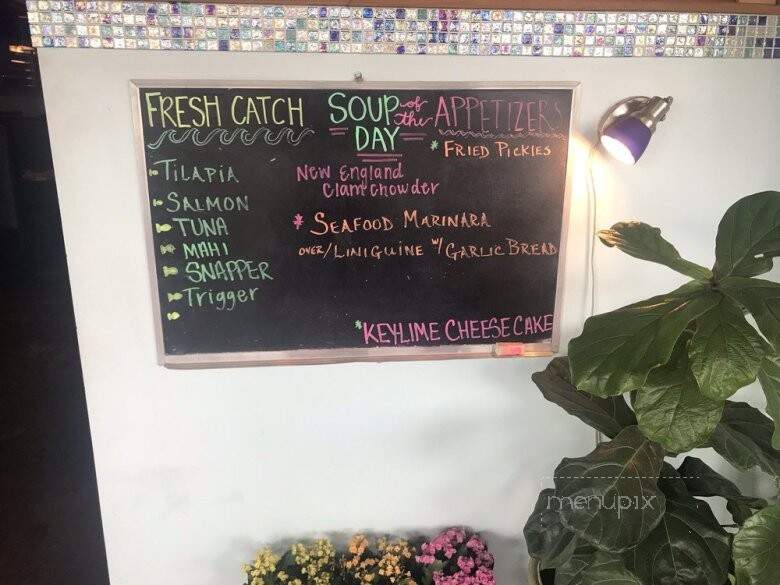 FRESH CATCH
TILAPIA
SALMON
TUNA
MAHI
SNAPPER
Trigger
SOUP of the DAY
New England
Clam chowder
APPETIZERS
* FRIED PICKIES
* SEAFOOD MARINARA
OVER/LINIGUINE W/ GARLIC BREAD
*KEY-LIME CHEESE CAKE
menupix